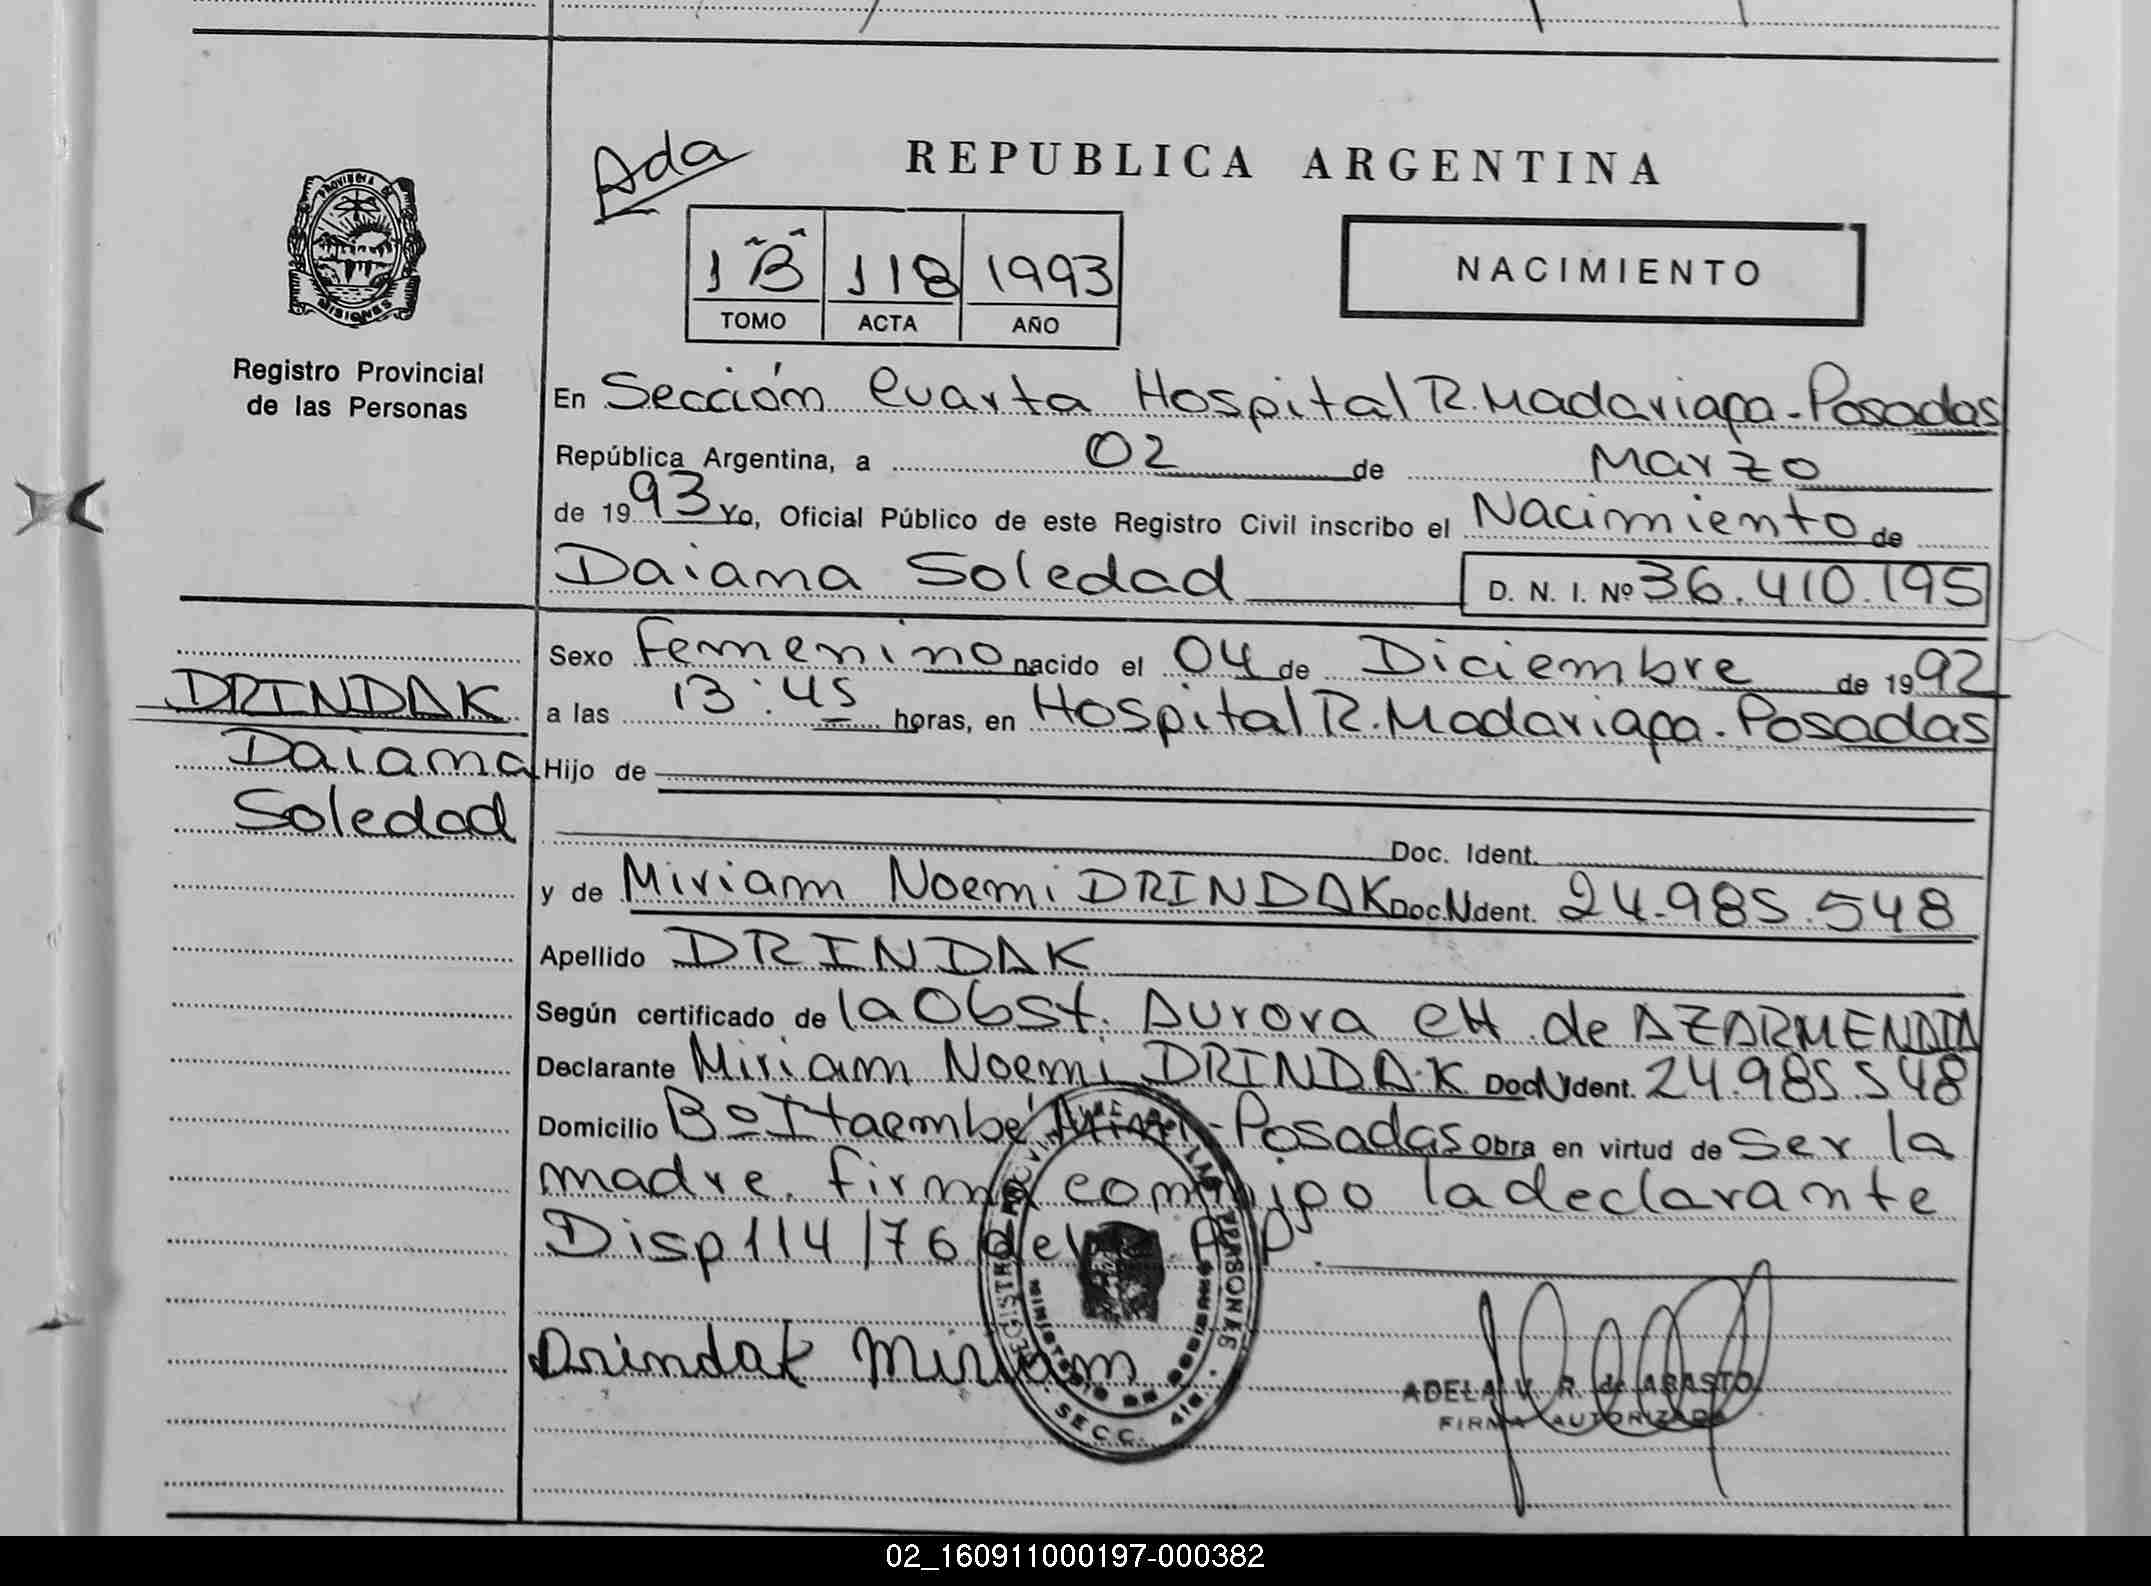 Ada
REPUBLICA ARGENTINA
1 "B" 118 1993
TOMO ACTA AÑO
NACIMIENTO
PROVINCIA DE MISIONES
Registro Provincial
de las Personas
En Sección Cuarta Hospital R. Madariaga - Posadas
República Argentina, a 02 de Marzo
de 1993 Yo, Oficial Público de este Registro Civil inscribo el Nacimiento de
Daiana Soledad D. N. I. Nº 36.410.195
Sexo Femenino nacido el 04 de Diciembre de 1992
DRINDAK
a las 13:45 horas, en Hospital R. Madariaga - Posadas
Daiana
Hijo de
Soledad
Doc. Ident.
y de Miriam Noemi DRINDAK Doc. Ident. 24.985.548
Apellido DRINDAK
Según certificado de la Obst. Aurora CH. de AZARMENDIA
Declarante Miriam Noemi DRINDAK Doc. Ident. 24.985.548
Domicilio Bº Itaembé Miní - Posadas Obra en virtud de Ser la
madre. firma conmigo la declarante
Disp 114/76 del
Drindak Miriam
SECC. 4ta
MINISTERIO DE GOBIERNO
ADELA V. R. de ABASTO
FIRMA AUTORIZADA
02_160911000197-000382